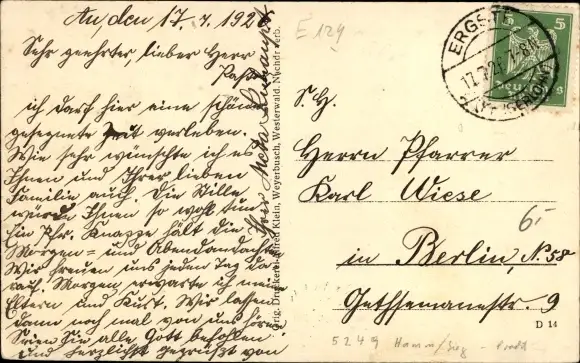 Au, den 17.7.192
Sehr geehrter, lieber Herr
Pastor
ich darf hier eine schöne
gesegnete Zeit verleben.
Wie sehr wünschte ich es
Ihnen und Ihrer lieben
Familie auch. Die Stille
würde Ihnen so wohl tun
Ein Pfr. Knappe hält die
Morgen= und Abendandachten
Wir freuen uns jeden Tag da
rauf. Morgen erwarte ich meine
Eltern und Kurt. Wir lassen
dann noch mal von uns hören
Seien Sie alle Gott befohlen
und herzlichst gegrüßt von
Ihrer
Orig. Druckerei Alfred Klein, Weyerbusch, Westerwald. Nachdr. verb.
E 124
5
S. H.
Herrn Pfarrer
Karl Wiese
in Berlin, N. 58
Gethsemanestr. 9
6.-
D 14
5249 Hamm/Sieg